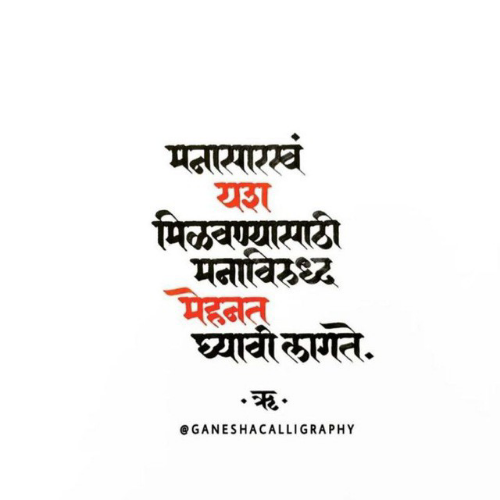 मनासारखं
यश
मिळवण्यासाठी
मनाविरुध्द
मेहनत
घ्यावी लागते.
·ऋ·
@GANESHACALLIGRAPHY